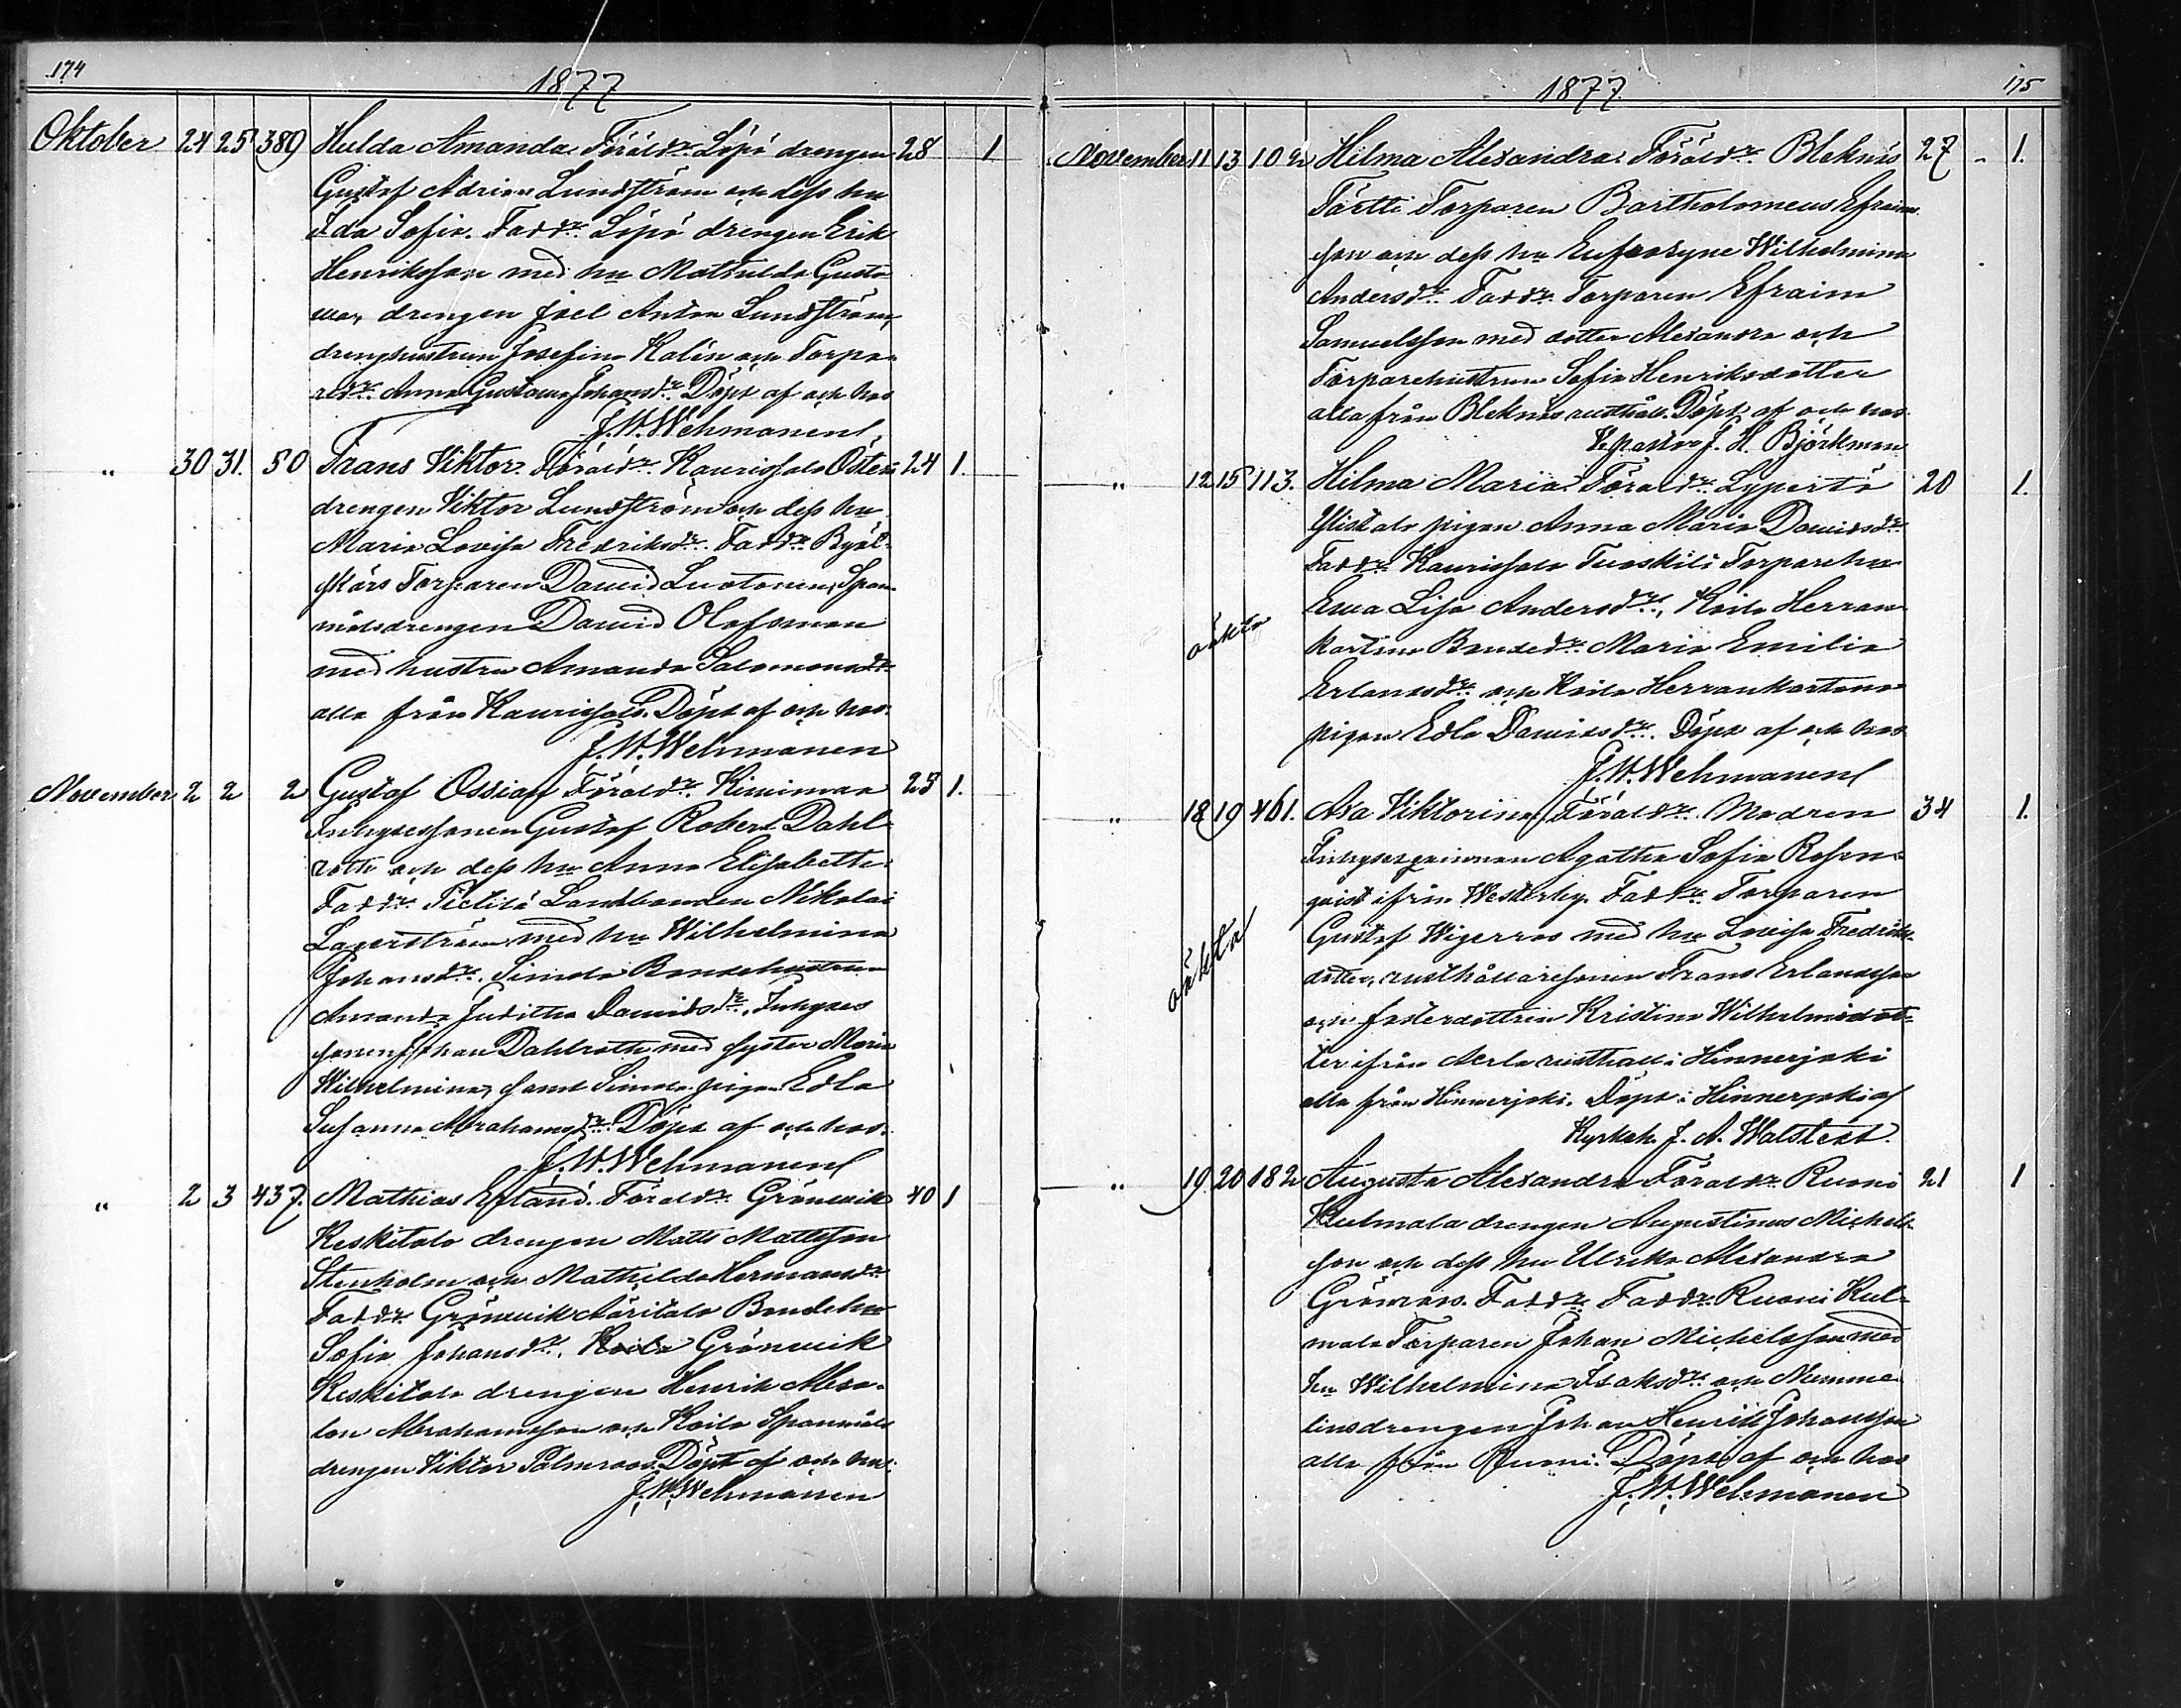 174
1877
Oktober 24 25 389 Hulda Amanda. Föräldr: Löpö drengen 28 1
Gustaf Adrian Lundström och dess hu
Ida Sofia. Faddr: Löpö drengen Erik
Henriksson med hu Mathilda Gusta
va, drengen Joel Anton Lundström,
drenghustrun Josefina Kalén och Torpa-
redr: Anna Gustava Johansdr: Döpt af och hos
J. W. Wehmanen
" 30 31. 50 Frans Viktor. Föräldr: Kaurissalo 24 1.
drengen Viktor Lundström och dess hu
Maria Lovisa Fredriksdr: Faddr:
skärs Torparen David
drengen David Olofsman
med hustru Amanda Salomonsdr
alla från Kaurissalo. Döpt af och hos
J. W. Wehmanen
November 2 2 2 Gustaf Ossian Föräldr: Kiviniemi 25 1.
Inhysessonen Gustaf Robert Dahl-
roth och dess hu Anna Elisabeth.
Faddr: Landbonden Nikolai
Lagerström med hu Wilhelmina
Johansdr: Simola Bondehustrun
Amanda Juditha Davidsdr: Inhyses
sonen Johan Dahlroth med syster Maria
Wilhelmina, samt Simola pigan Edla
Susanna Abrahamsdr: Döpt af och hos
J. W. Wehmanen
" 2 3 437. Mathias Erland. Föräldr: Grönvik 40 1
Keskitalo drengen Matts Mattsson
Stenholm och Mathilda Hermansdr
Faddr: Grönvik Äöritalo Bondehu
Sofia Johansdr: Koila Grönvik
Keskitalo drengen Henrik Absa-
lon Abrahamsson och Koila Spanmåls
drengen Viktor Palmroos. Döpt af och hos
J. W. Wehmanen
1877.
175
November 11 13 102 Hilma Alexandra: Föräldr: Bleknäs 27 - 1.
Torparen Bartholomeus Efraims
son och dess hu Eufrosyne Wilhelmina
Andersdr: Faddr: Torparen Efraim
Samuelsson med dotter Alexandra och
Torparehustrun Sofia Henriksdotter
alla från Bleknäs rusthåll. Döpt af och hos
V. pastor J. H. Björkman
" 12 15 113. Hilma Maria. Föräldr: Lypertö 20 1.
Ylistalo pigan Anna Maria Davidsdr:
Faddr: Kaurissalo Tuoskili Torparehu
oäkta
Eva Lisa Andersdr:, Koila Herran
kartano Bondedr: Maria Emilia
Erlandsdr: och Koila Herrankartano
pigan Edla Davidsdr: Döpt af och hos
J. W. Wehmanen
" 18 19 461. Ada Viktorina, Föräldr: Modren 34 1.
Inhysesqvinnan Agatha Sofia Rosen-
qvist ifrån Westerby. Faddr: Torparen
oäkta
Gustaf Wigerroos med hu Lovisa Fredriks-
dotter, rusthållaresonen Frans Erlandsson
och fosterdottren Kristina Wilhelmsdot-
ter ifrån rusthåll i Hinnerjoki
alla från Hinnerjoki. Döpt i Hinnerjoki af
Kyrkoh. J. A. Walstedt.
" 19 20 182 Augusta Alexandra Föräldr: Ruoni 21 1
Kulmala drengen Augustinus Michels-
son och dess hu Ulrika Alexandra
Grönroos. Faddr: Faddr: Ruoni Kul-
mala Torparen Johan Michelsson med
hu Wilhelmina Isaksdr: och Numme-
linsdrengen Johan Henrik Johansson
alla från Ruoni. Döpt af och hos
J. W. Wehmanen